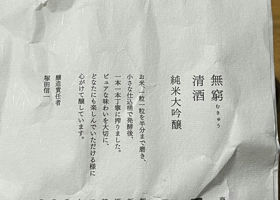 無窮
むきゅう
清酒
純米大吟醸
お米、一粒一粒を半分まで磨き、
小さな仕込桶で発酵後、
一本一本丁寧に搾りました。
ピュアな味わいを大切に、
どなたにも楽しんでいただける様に
心がけて醸しています。
醸造責任者
塚田信一